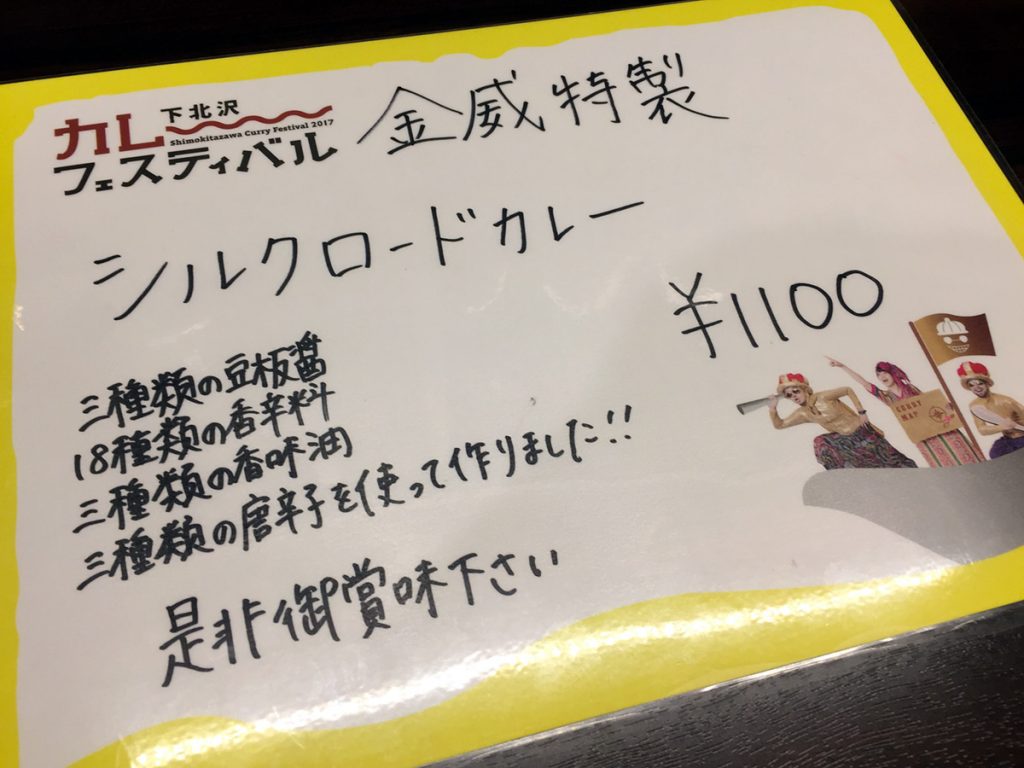 下北沢
カレー
Shimokitazawa Curry Festival 2017
フェスティバル
金威特製
シルクロードカレー
¥1100
三種類の豆板醤
18種類の香辛料
三種類の香味油
三種類の唐辛子を使って作りました!!
是非御賞味下さい
CURRY
MAP